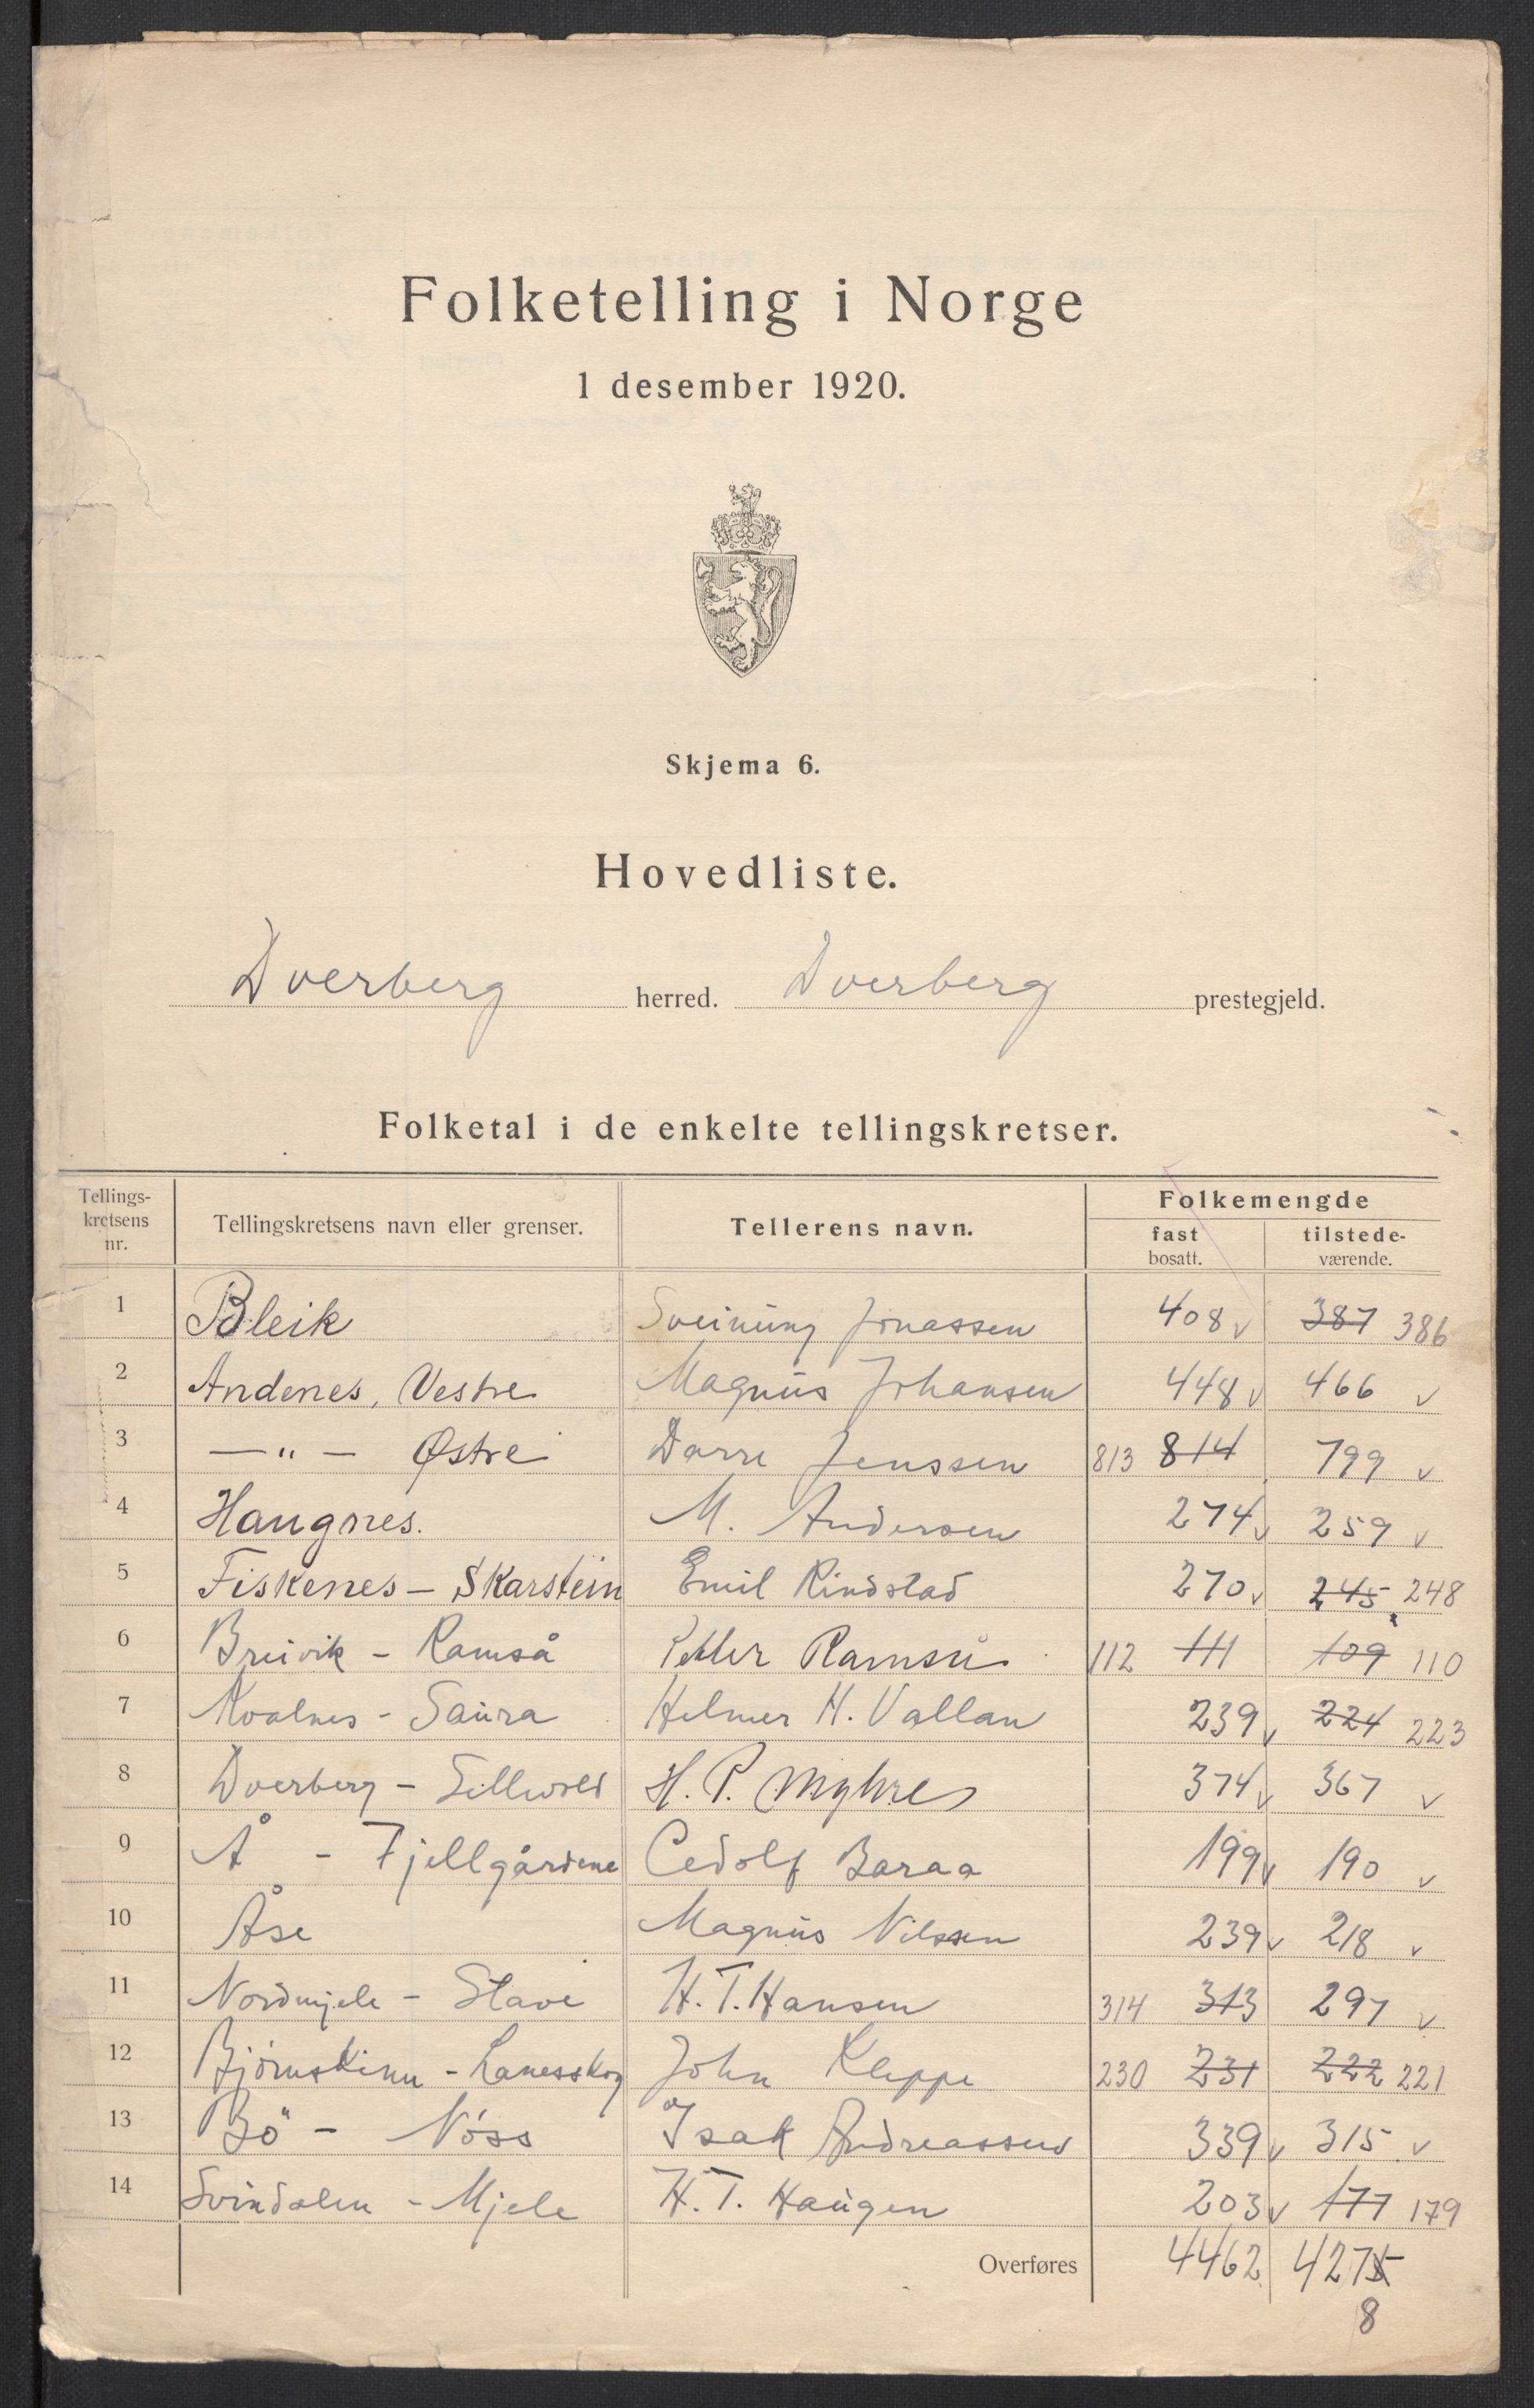 Folketelling i Norge
1 desember 1920.
Skjema 6.
Hovedliste.
Dverberg herred. Dverberg prestegjeld.
Folketal i de enkelte tellingskretser.
Tellings-kretsens nr. Tellingskretsens navn eller grenser. Tellerens navn. Folkemengde
fast bosatt. tilstede-værende.
1 Bleik Sveinung Jonassen 408 v 387 386
2 Andenes, Vestre Magnus Johansen 448 v 466 v
3 — " — Østre Darre Jenssen 813 814 799 v
4 Haugnes. M. Andersen 274 v 259 v
5 Fiskenes – Skarstein Emil Rindstad 270 v 245 248
6 Breivik – Ramså Petter Ramså 112 111 109 110
7 Kvalnes – Saura Helmer H. Vallan 239 v 224 223
8 Dverberg – H. P. Myhre 374 v 367 v
9 Å – Fjellgårdene Cedolf Baraa 199 v 190 v
10 Åse Magnus Nilssen 239 v 218 v
11 Nordmjele – Stave H. T. Hansen 314 313 297 v
12 Bjørnskinn – Lanesskog John Kleppe 230 231 222 221
13 Bö – Nöss Isak Andreassen 339 v 315 v
14 Svindalen – Mjele H. T. Haugen 203 v 177 179
Overføres 4462 4275
8